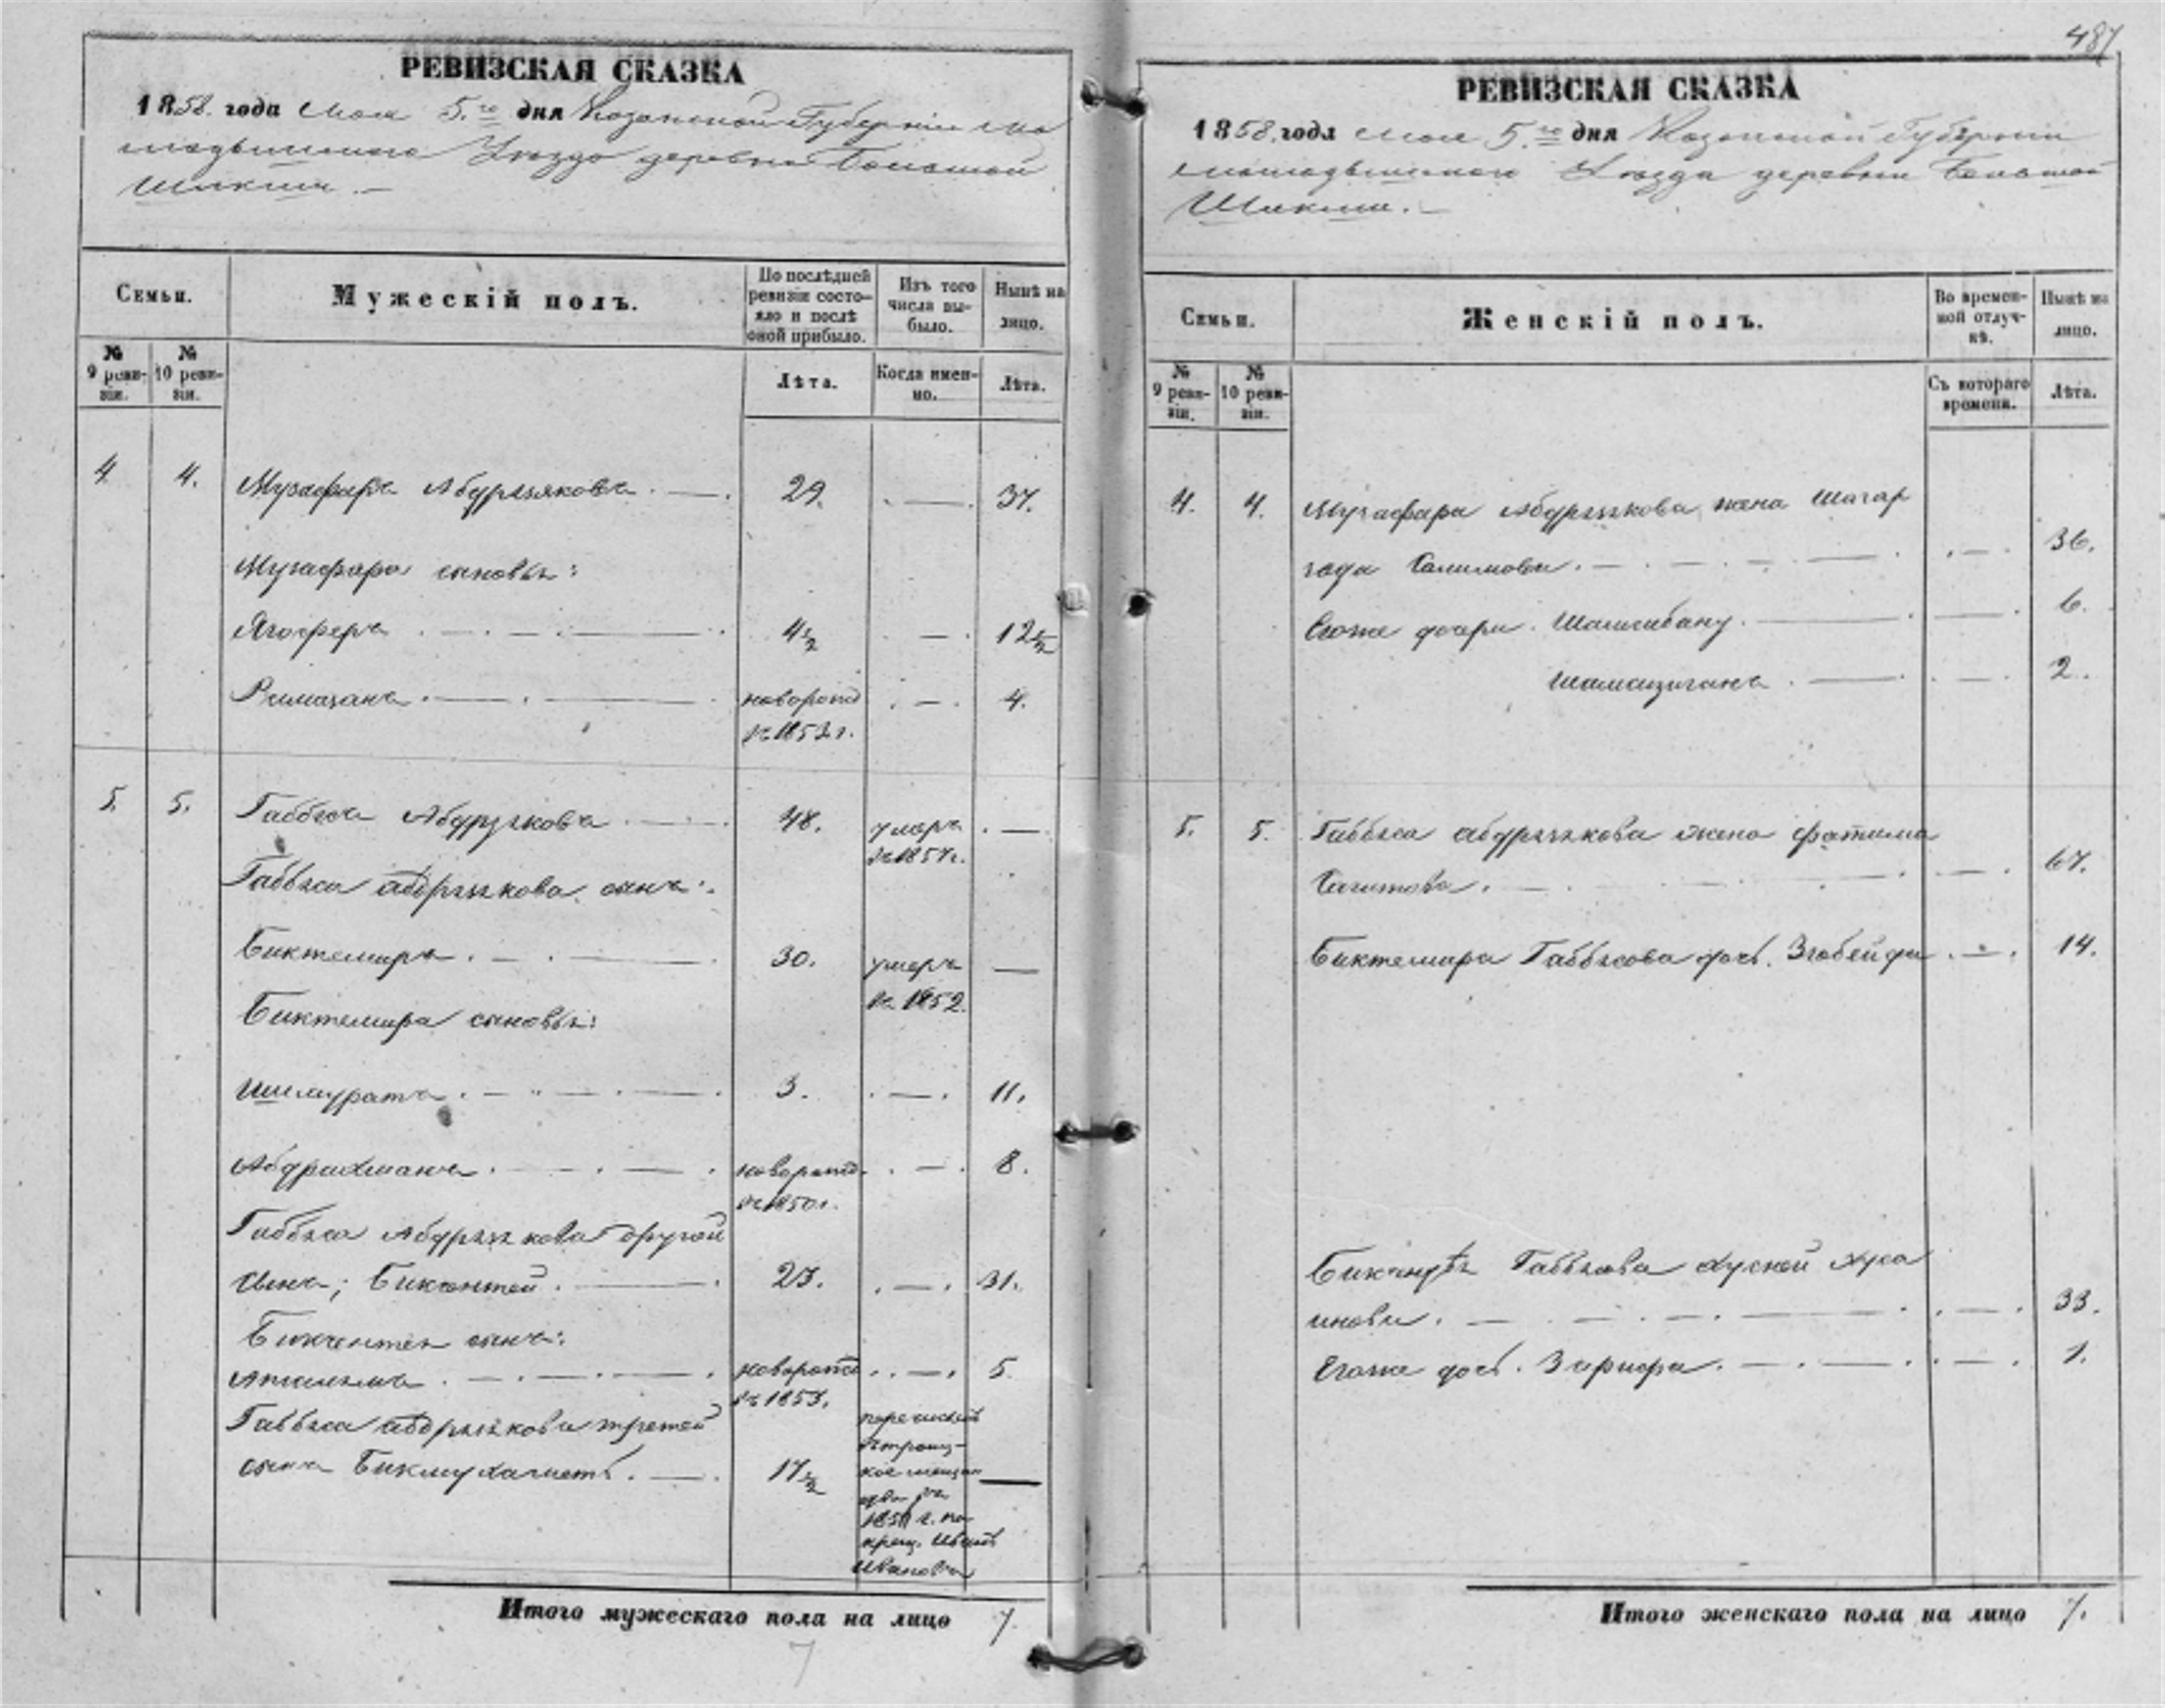 487
РЕВИЗСКАЯ СКАЗКА
1858 года Мая 5.го дня Казанской Губернiи Ма
мадышскаго Уезда деревни Большой
Шикши. —
Семьи.
Мужескiй полъ.
По послѣдней
ревизiи состо-
яло и послѣ
оной прибыло.
Изъ того
числа вы-
было.
Нынѣ на
лицо.
№
9 реви-
зiи.
№
10 реви-
зiи.
Лѣта.
Когда имен-
но.
Лѣта.
4 4. Музафаръ Абдрязяковъ 29. — 37.
Музафара сыновья:
Ягоферъ 4½ — 12½
Рамазанъ новорожд — 4.
въ 185 г.
5. 5. Габбясъ Абдрязяковъ 48. умеръ —
въ 1857г.
Габбяса абдрязякова сынъ:
Биктемиръ 30. умеръ —
въ 1852.
Биктемира сыновья:
Ишмуратъ 3. — 11.
Абдрахманъ новорожд. — 8.
въ 1850г.
Габбяса Абдрязякова другой
сынъ; Бикчентей 23. — 31.
Бикчентея сынъ:
новорожд — 5.
въ 1853.
Габбяса абдрязякова третей
сынъ Бикмухаметъ. 17½ перечисленъ
въ троиц-
кое мещан
ство въ
185 г. по
крещ. Иванъ
Ивановъ —
Итого мужескаго пола на лицо 7.
7
РЕВИЗСКАЯ СКАЗКА
1858. года Мая 5.го дня Казанской Губернiи
Мамадышскаго Уезда деревни Большой
Шикши. —
Семьи.
Женскiй полъ.
Во времен-
ной отлуч-
кѣ.
Нынѣ на
лицо.
№
9 реви-
зiи.
№
10 реви-
зiи.
Съ котораго
времени.
Лѣта.
4. 4. Музафара Абдрязякова жена Шагар
Салимова. — 36.
Егоже дочери. Шамсибану. — 6.
— 2.
5. 5. Габбяса абдрязякова жена Фатима
Сагитова. — 67.
Биктемира Габбясова дочь. Зюбейда — 14.
Бикчентея Габбясова Хусней Хуса
инова. — 33.
Егоже дочь. — 1.
Итого женскаго пола на лицо 7.